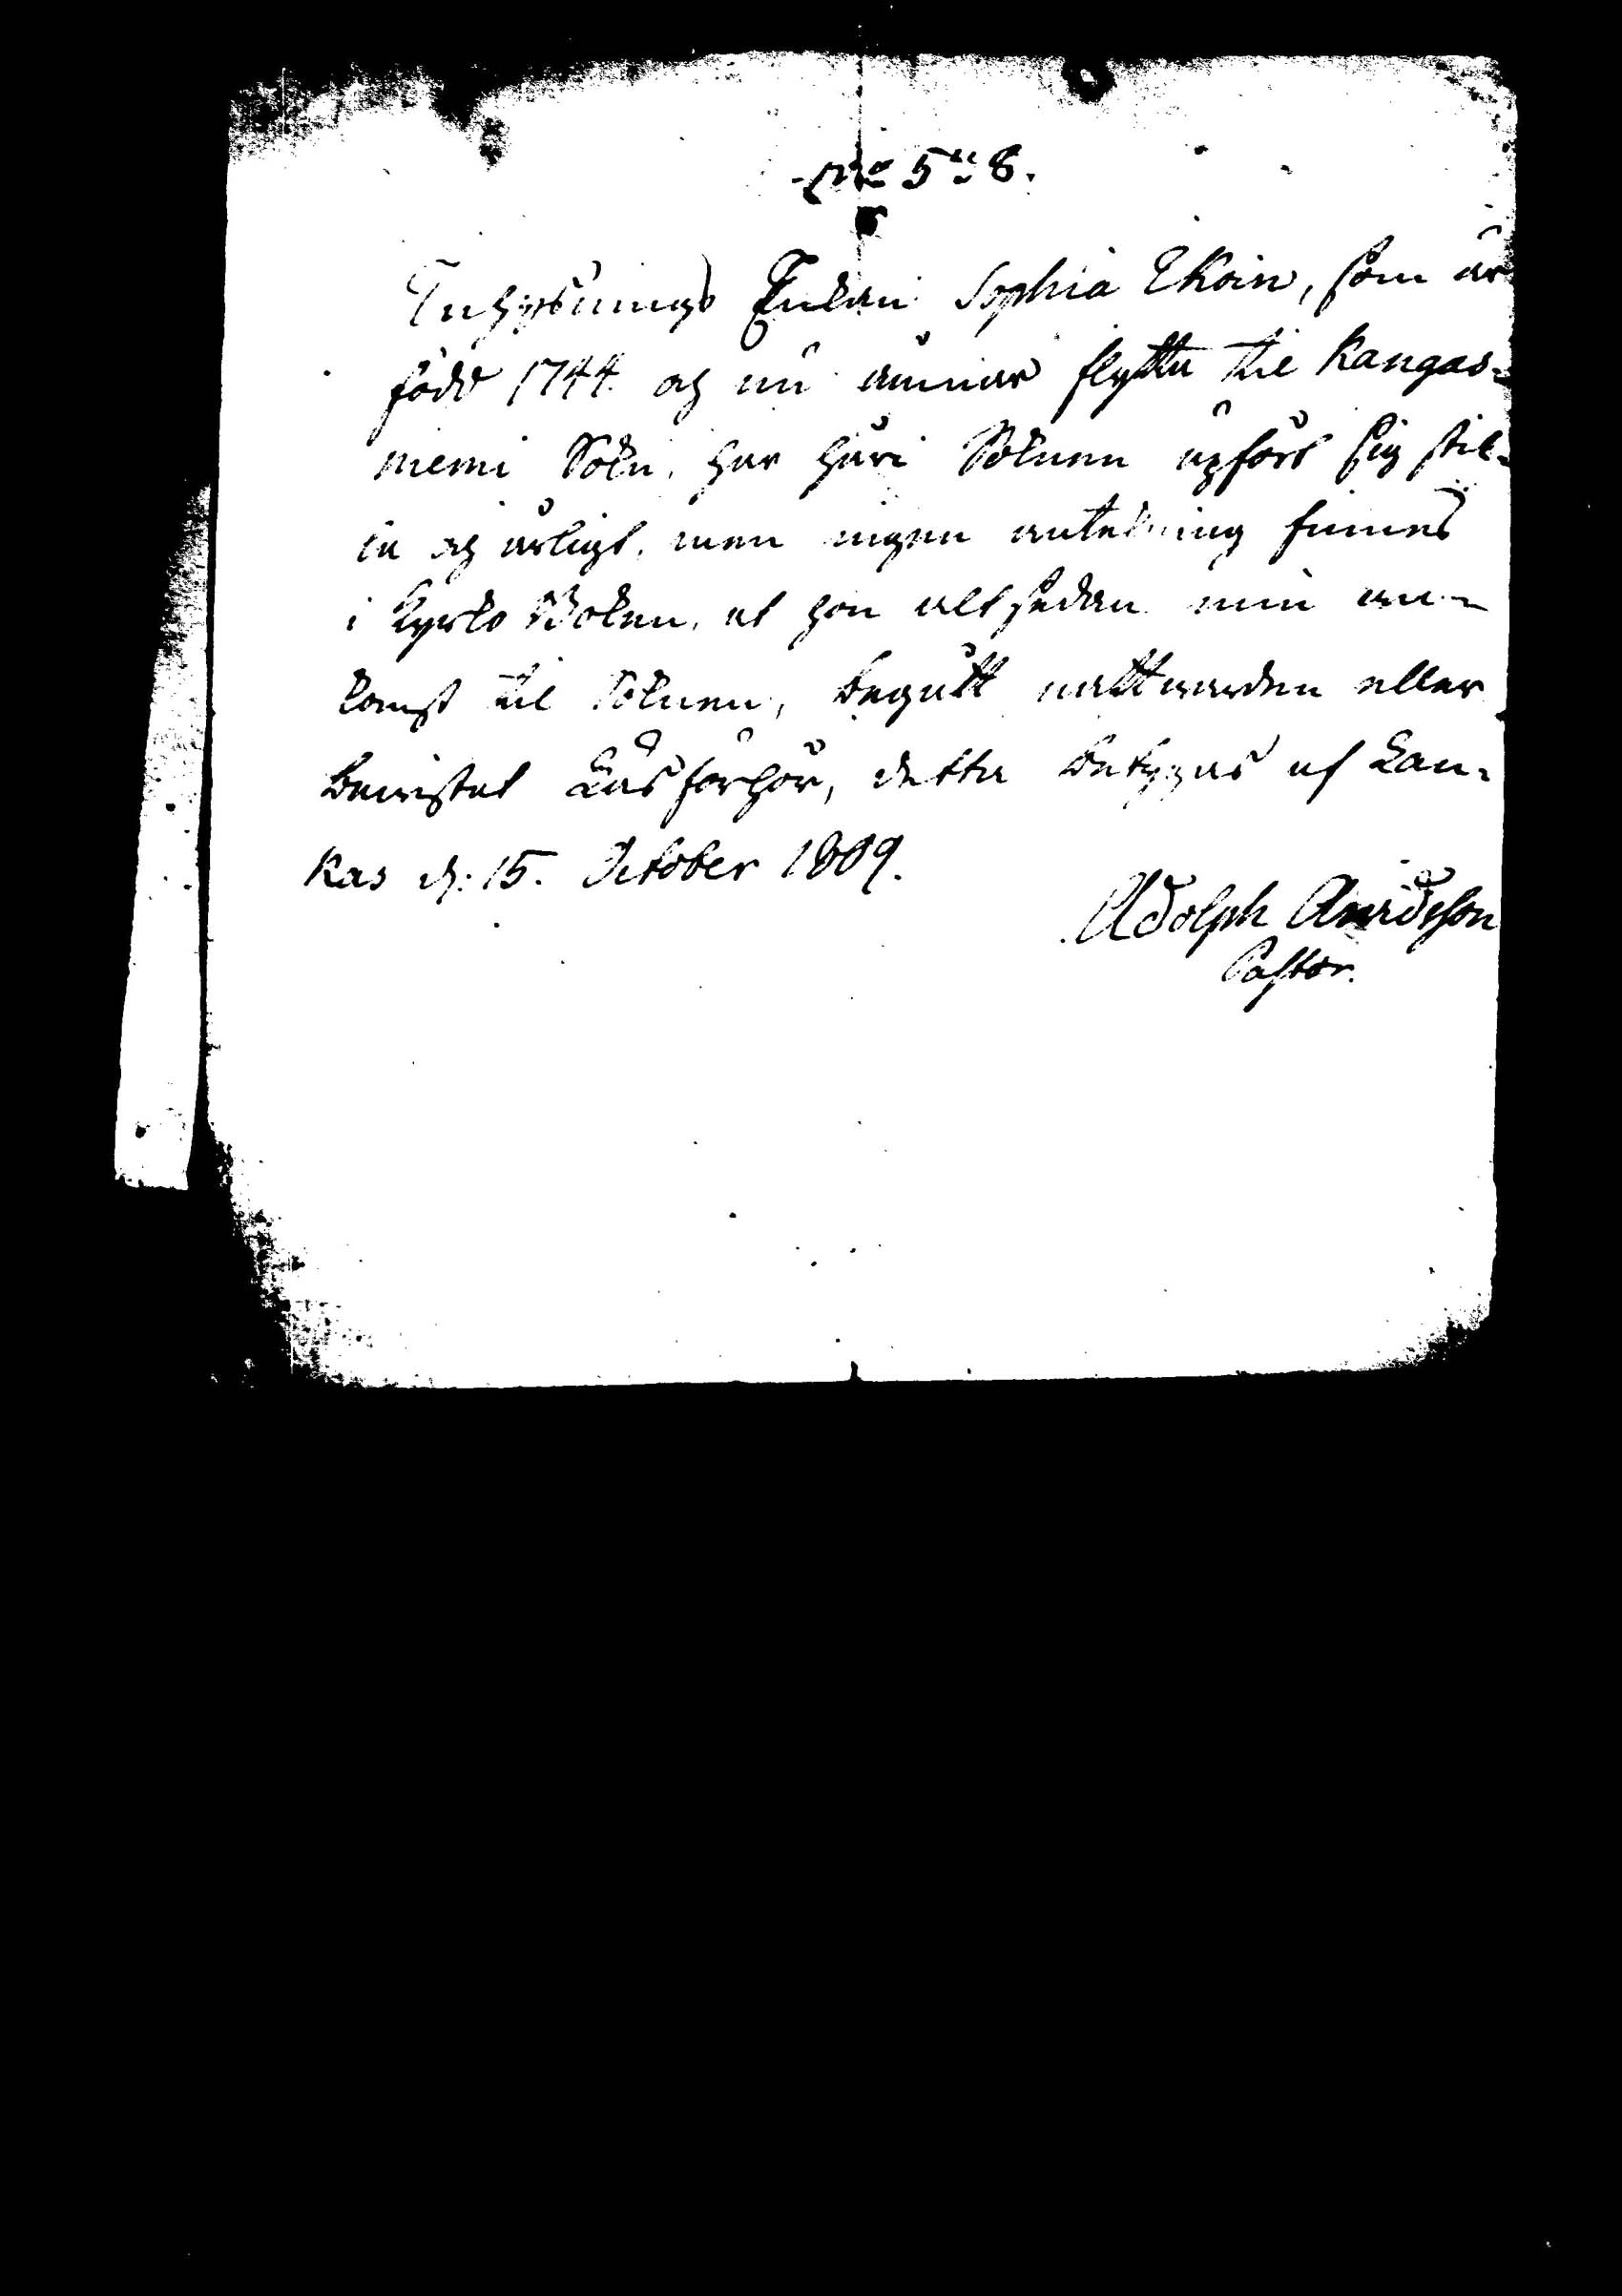 No 5 8.
Inhysnings Enkan Sophia Ekoin, som är
född 1744. och nu ämnar flytta til Kangas=
niemi Sokn, har här i Soknen upfört sig stil=
la och ärligt, men ingen antekning finnes
i Kyrko Boken, at hon alt sedan min an=
komst til Soknen, begått nattwarden eller
bewistat Läsförhör, detta betygas af Lau=
kas d: 15. October 1809.
Adolph Arwidsson
Pastor.